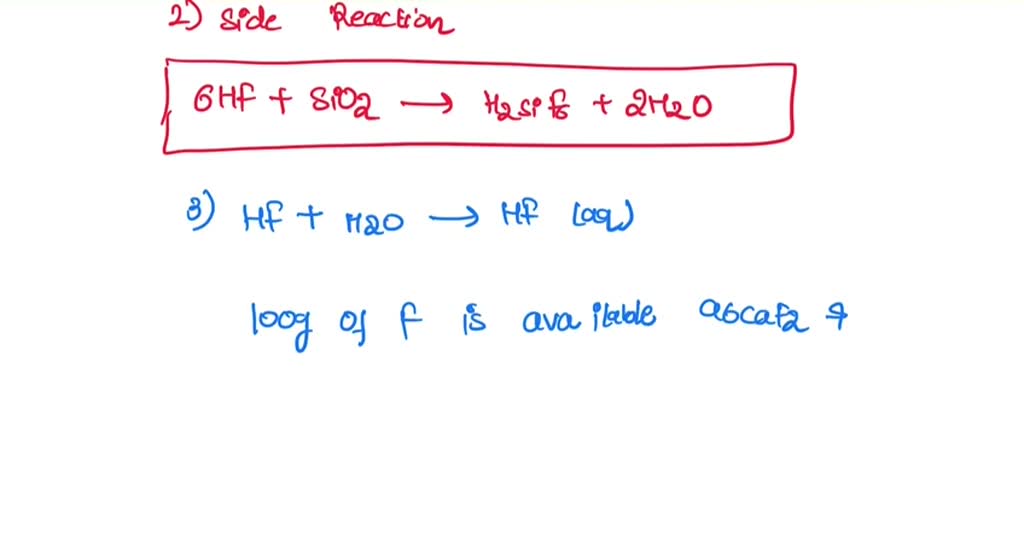 2) Side Reaction
6HF + SiO2 → H2SiF6 + 2H2O
3) HF + H2O → HF (aq)
100g of F is available as CaF2 &